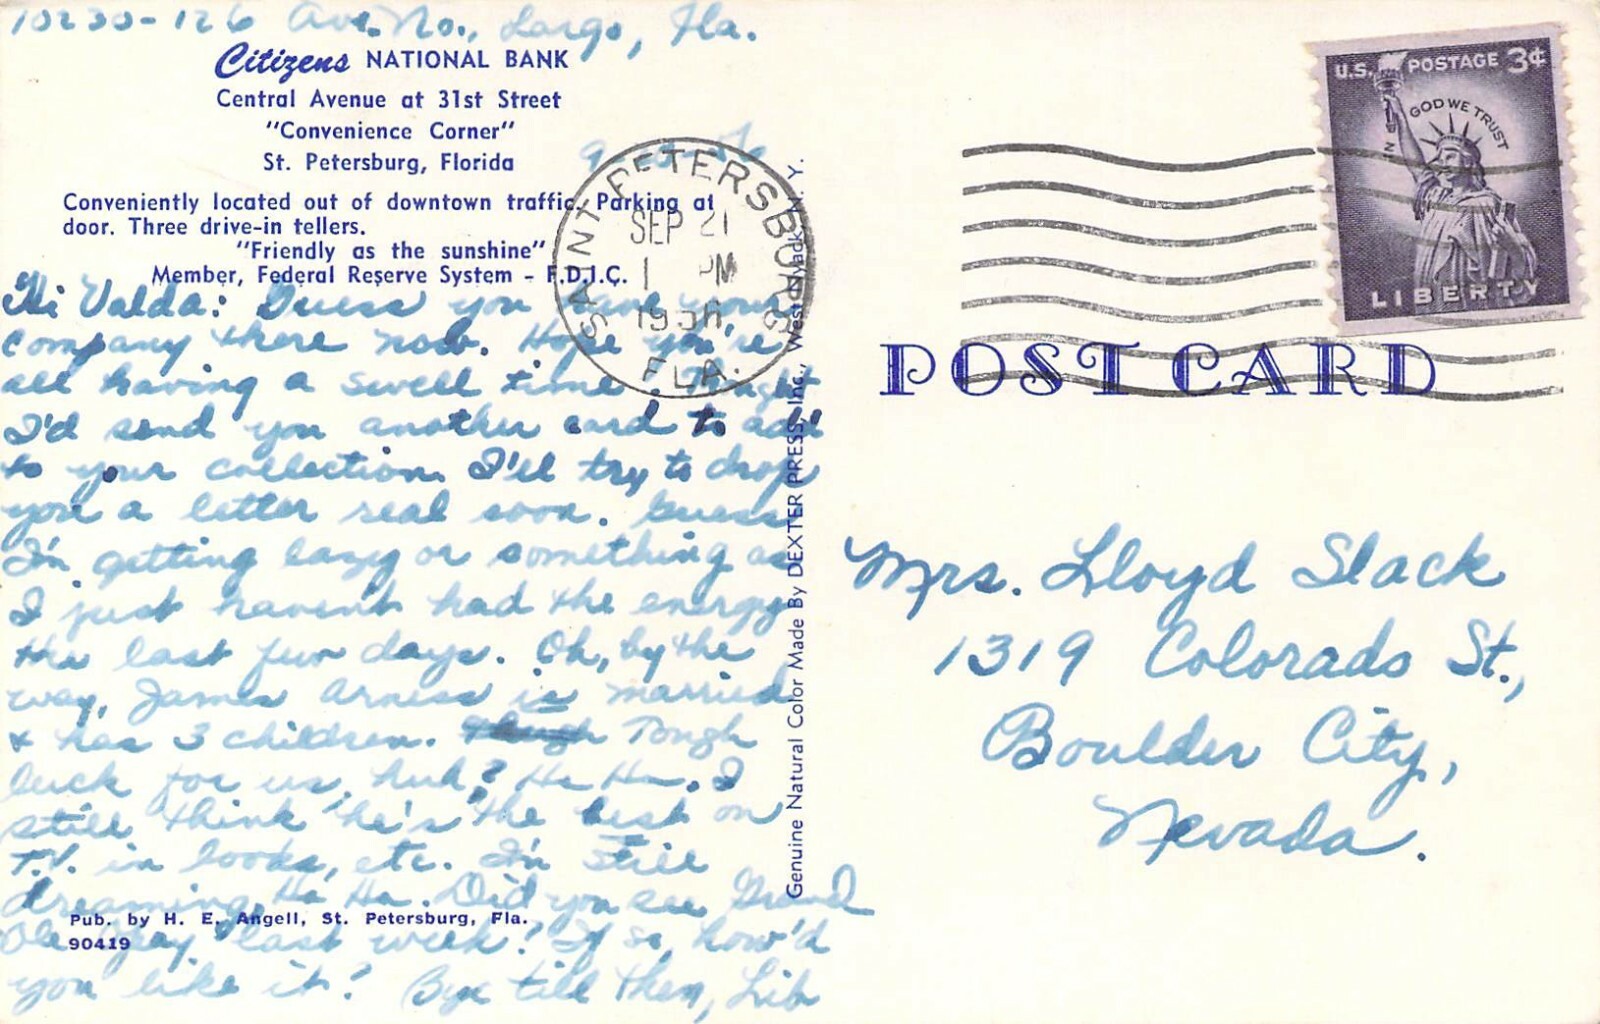 10230-126 Ave. No., Largo, Fla.
Citizens NATIONAL BANK
Central Avenue at 31st Street
"Convenience Corner"
St. Petersburg, Florida
Conveniently located out of downtown traffic. Parking at
door. Three drive-in tellers.
"Friendly as the sunshine"
Member, Federal Reserve System - F.D.I.C.
Hi Valda: Guess you have your
company there now. Hope you're
all having a swell time. Thought
I'd send you another card to add
to your collection. I'll try to drop
you a letter real soon. Guess
I'm getting lazy or something as
I just haven't had the energy
the last few days. Oh, by the
way, James Arness is married
& has 3 children. Tough
luck for us, huh? Ha Ha. I
still think he's the best on
T.V. in looks, etc. I'm still
dreaming, Ha Ha. Did you see Grand
Ole Opry last week? If so, how'd
you like it? Bye till then, Lib
Pub. by H. E. Angell, St. Petersburg, Fla.
90419
SAINT PETERSBURG
SEP 21
1 PM
1956
FLA.
Genuine Natural Color Made By DEXTER PRESS, Inc., West Nyack, N. Y.
U.S. POSTAGE 3¢
IN GOD WE TRUST
LIBERTY
POST CARD
Mrs. Lloyd Slack
1319 Colorado St.,
Boulder City,
Nevada.